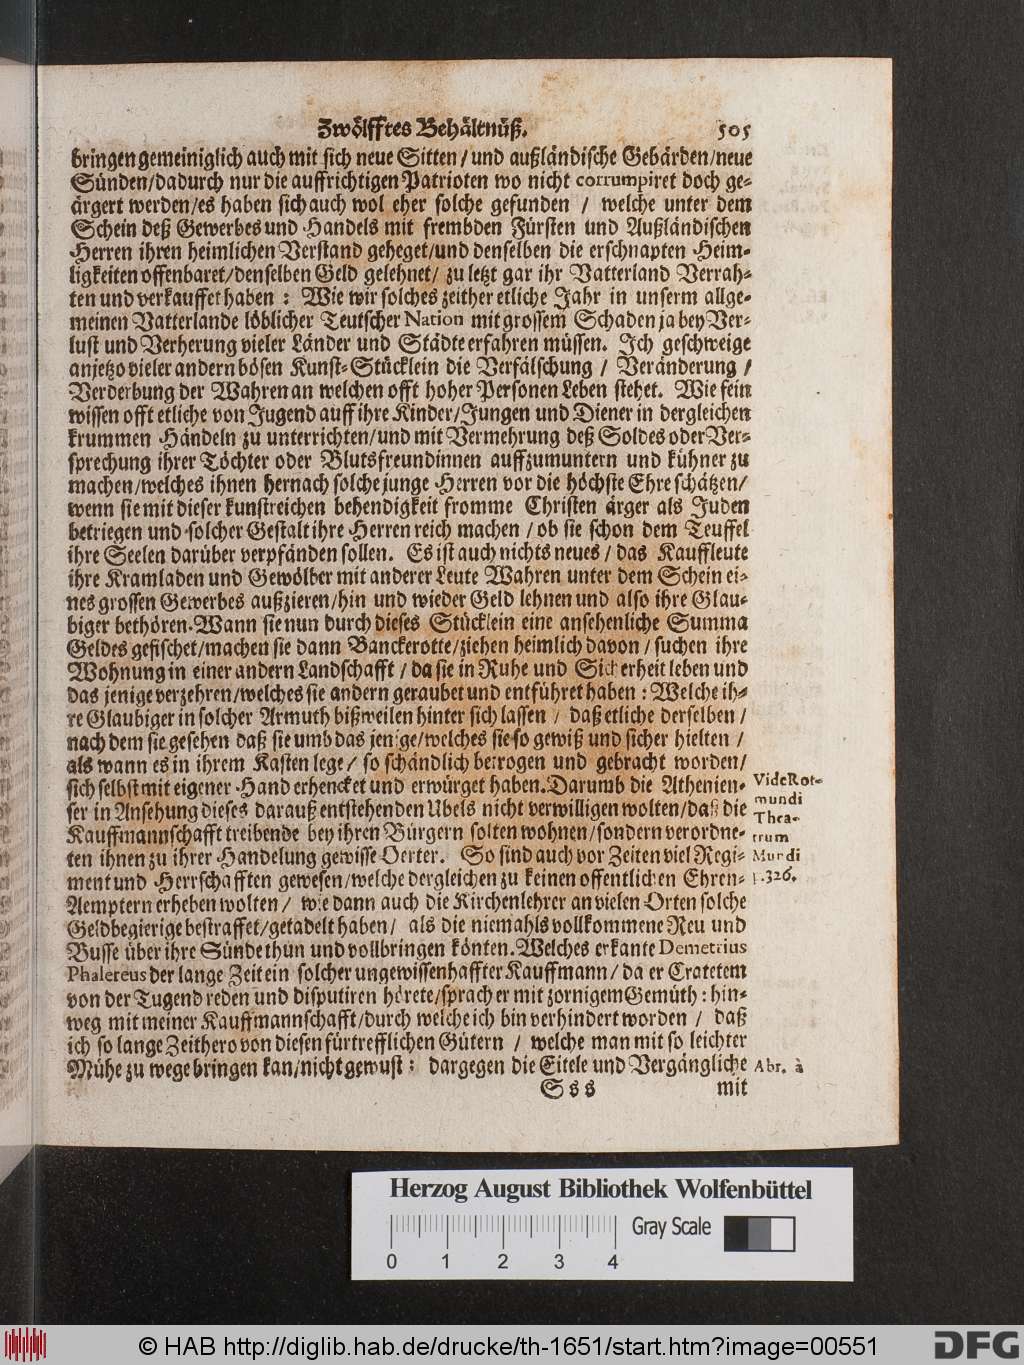 Zwölfftes Behältnüß. 505
bringen gemeiniglich auch mit sich neue Sitten / und außländische Gebärden/neue
Sünden/dadurch nur die auffrichtigen Patrioten wo nicht corrumpiret doch ge-
ärgert werden/es haben sich auch wol eher solche gefunden / welche unter dem
Schein deß Gewerbes und Handels mit frembden Fürsten und Außländischen
Herren ihren heimlichen Verstand geheget/und denselben die erschnapten Heim-
ligkeiten offenbaret/denselben Geld gelehnet/ zu letzt gar ihr Vatterland Verrah-
ten und verkauffet haben : Wie wir solches zeither etliche Jahr in unserm allge-
meinen Vatterlande löblicher Teutscher Nation mit grossem Schaden ja bey Ver-
lust und Verherung vieler Länder und Städte erfahren müssen. Ich geschweige
anjetzo vieler andern bösen Kunst-Stücklein die Verfälschung / Veränderung /
Verderbung der Wahren an welchen offt hoher Personen Leben stehet. Wie fein
wissen offt etliche von Jugend auff ihre Kinder/Jungen und Diener in dergleichen
krummen Händeln zu unterrichten/und mit Vermehrung deß Soldes oder Ver-
sprechung ihrer Töchter oder Blutsfreundinnen auffzumuntern und kühner zu
machen/welches ihnen hernach solche junge Herren vor die höchste Ehre schätzen/
wenn sie mit dieser kunstreichen behendigkeit fromme Christen ärger als Juden
betriegen und solcher Gestalt ihre Herren reich machen / ob sie schon dem Teuffel
ihre Seelen darüber verpfänden sollen. Es ist auch nichts neues / das Kauffleute
ihre Kramladen und Gewölber mit anderer Leute Wahren unter dem Schein ei-
nes grossen Gewerbes außzieren/hin und wieder Geld lehnen und also ihre Glau-
biger bethören. Wann sie nun durch dieses Stücklein eine ansehenliche Summa
Geldes gefischet/machen sie dann Banckerotte/ziehen heimlich davon / suchen ihre
Wohnung in einer andern Landschafft / da sie in Ruhe und Sicherheit leben und
das jenige verzehren/welches sie andern geraubet und entführet haben : Welche ih-
re Glaubiger in solcher Armuth bißweilen hinter sich lassen / daß etliche derselben /
nach dem sie gesehen daß sie umb das jenige/welches sie so gewiß und sicher hielten /
als wann es in ihrem Kasten lege / so schändlich betrogen und gebracht worden/
sich selbst mit eigener Hand erhencket und erwürget haben. Darumb die Athenien-
ser in Ansehung dieses darauß entstehenden Ubels nicht verwilligen wolten/daß die
Kauffmannschafft treibende bey ihren Bürgern solten wohnen/sondern verordne-
ten ihnen zu ihrer Handelung gewisse Oerter. So sind auch vor Zeiten viel Regi-
ment und Herrschafften gewesen/welche dergleichen zu keinen offentlichen Ehren-
Aemptern erheben wolten / wie dann auch die Kirchenlehrer an vielen Orten solche
Geldbegierige bestraffet/getadelt haben/ als die niemahls vollkommene Reu und
Busse über ihre Sünde thun und vollbringen könten. Welches erkante Demetrius
Phalereus der lange Zeit ein solcher ungewissenhaffter Kauffmann / da er Cratetem
von der Tugend reden und disputiren hörete/sprach er mit zornigem Gemüth : hin-
weg mit meiner Kauffmannschafft/durch welche ich bin verhindert worden / daß
ich so lange Zeithero von diesen fürtrefflichen Gütern / welche man mit so leichter
Mühe zu wege bringen kan/nicht gewust : dargegen die Eitele und Vergängliche
Sss mit
Vide Rot-
mundi
Thea-
trum
Mundi
p.326.
Abr. à
Herzog August Bibliothek Wolfenbüttel
Gray Scale
0 1 2 3 4
© HAB http://diglib.hab.de/drucke/th-1651/start.htm?image=00551
DFG